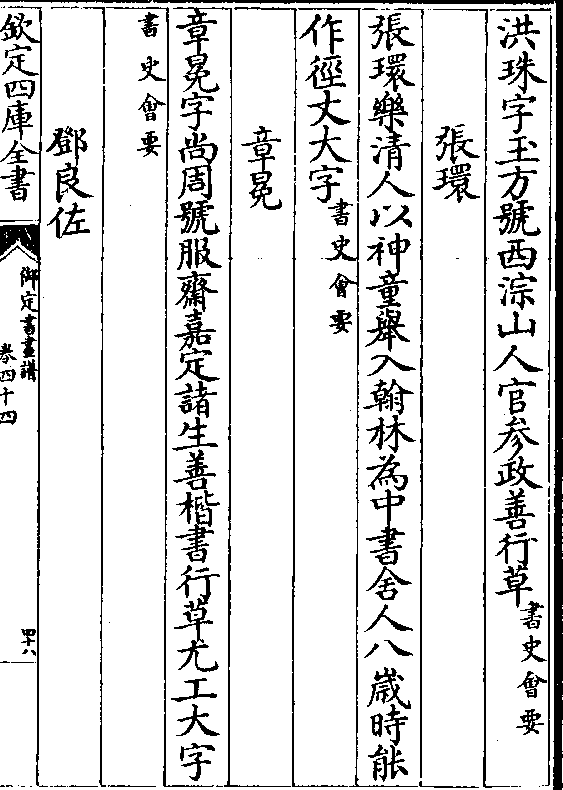 洪珠字玉方號西淙山人官參政善行草書史會要
張環
張環樂清人以神童舉入翰林為中書舍人八歲時能
作徑丈大字書史會要
章冕
章冕字尚周號服齋嘉定諸生善楷書行草尤工大字
書史會要
鄧良佐
欽定四庫全書
御定書畫譜
卷四十四
四十八